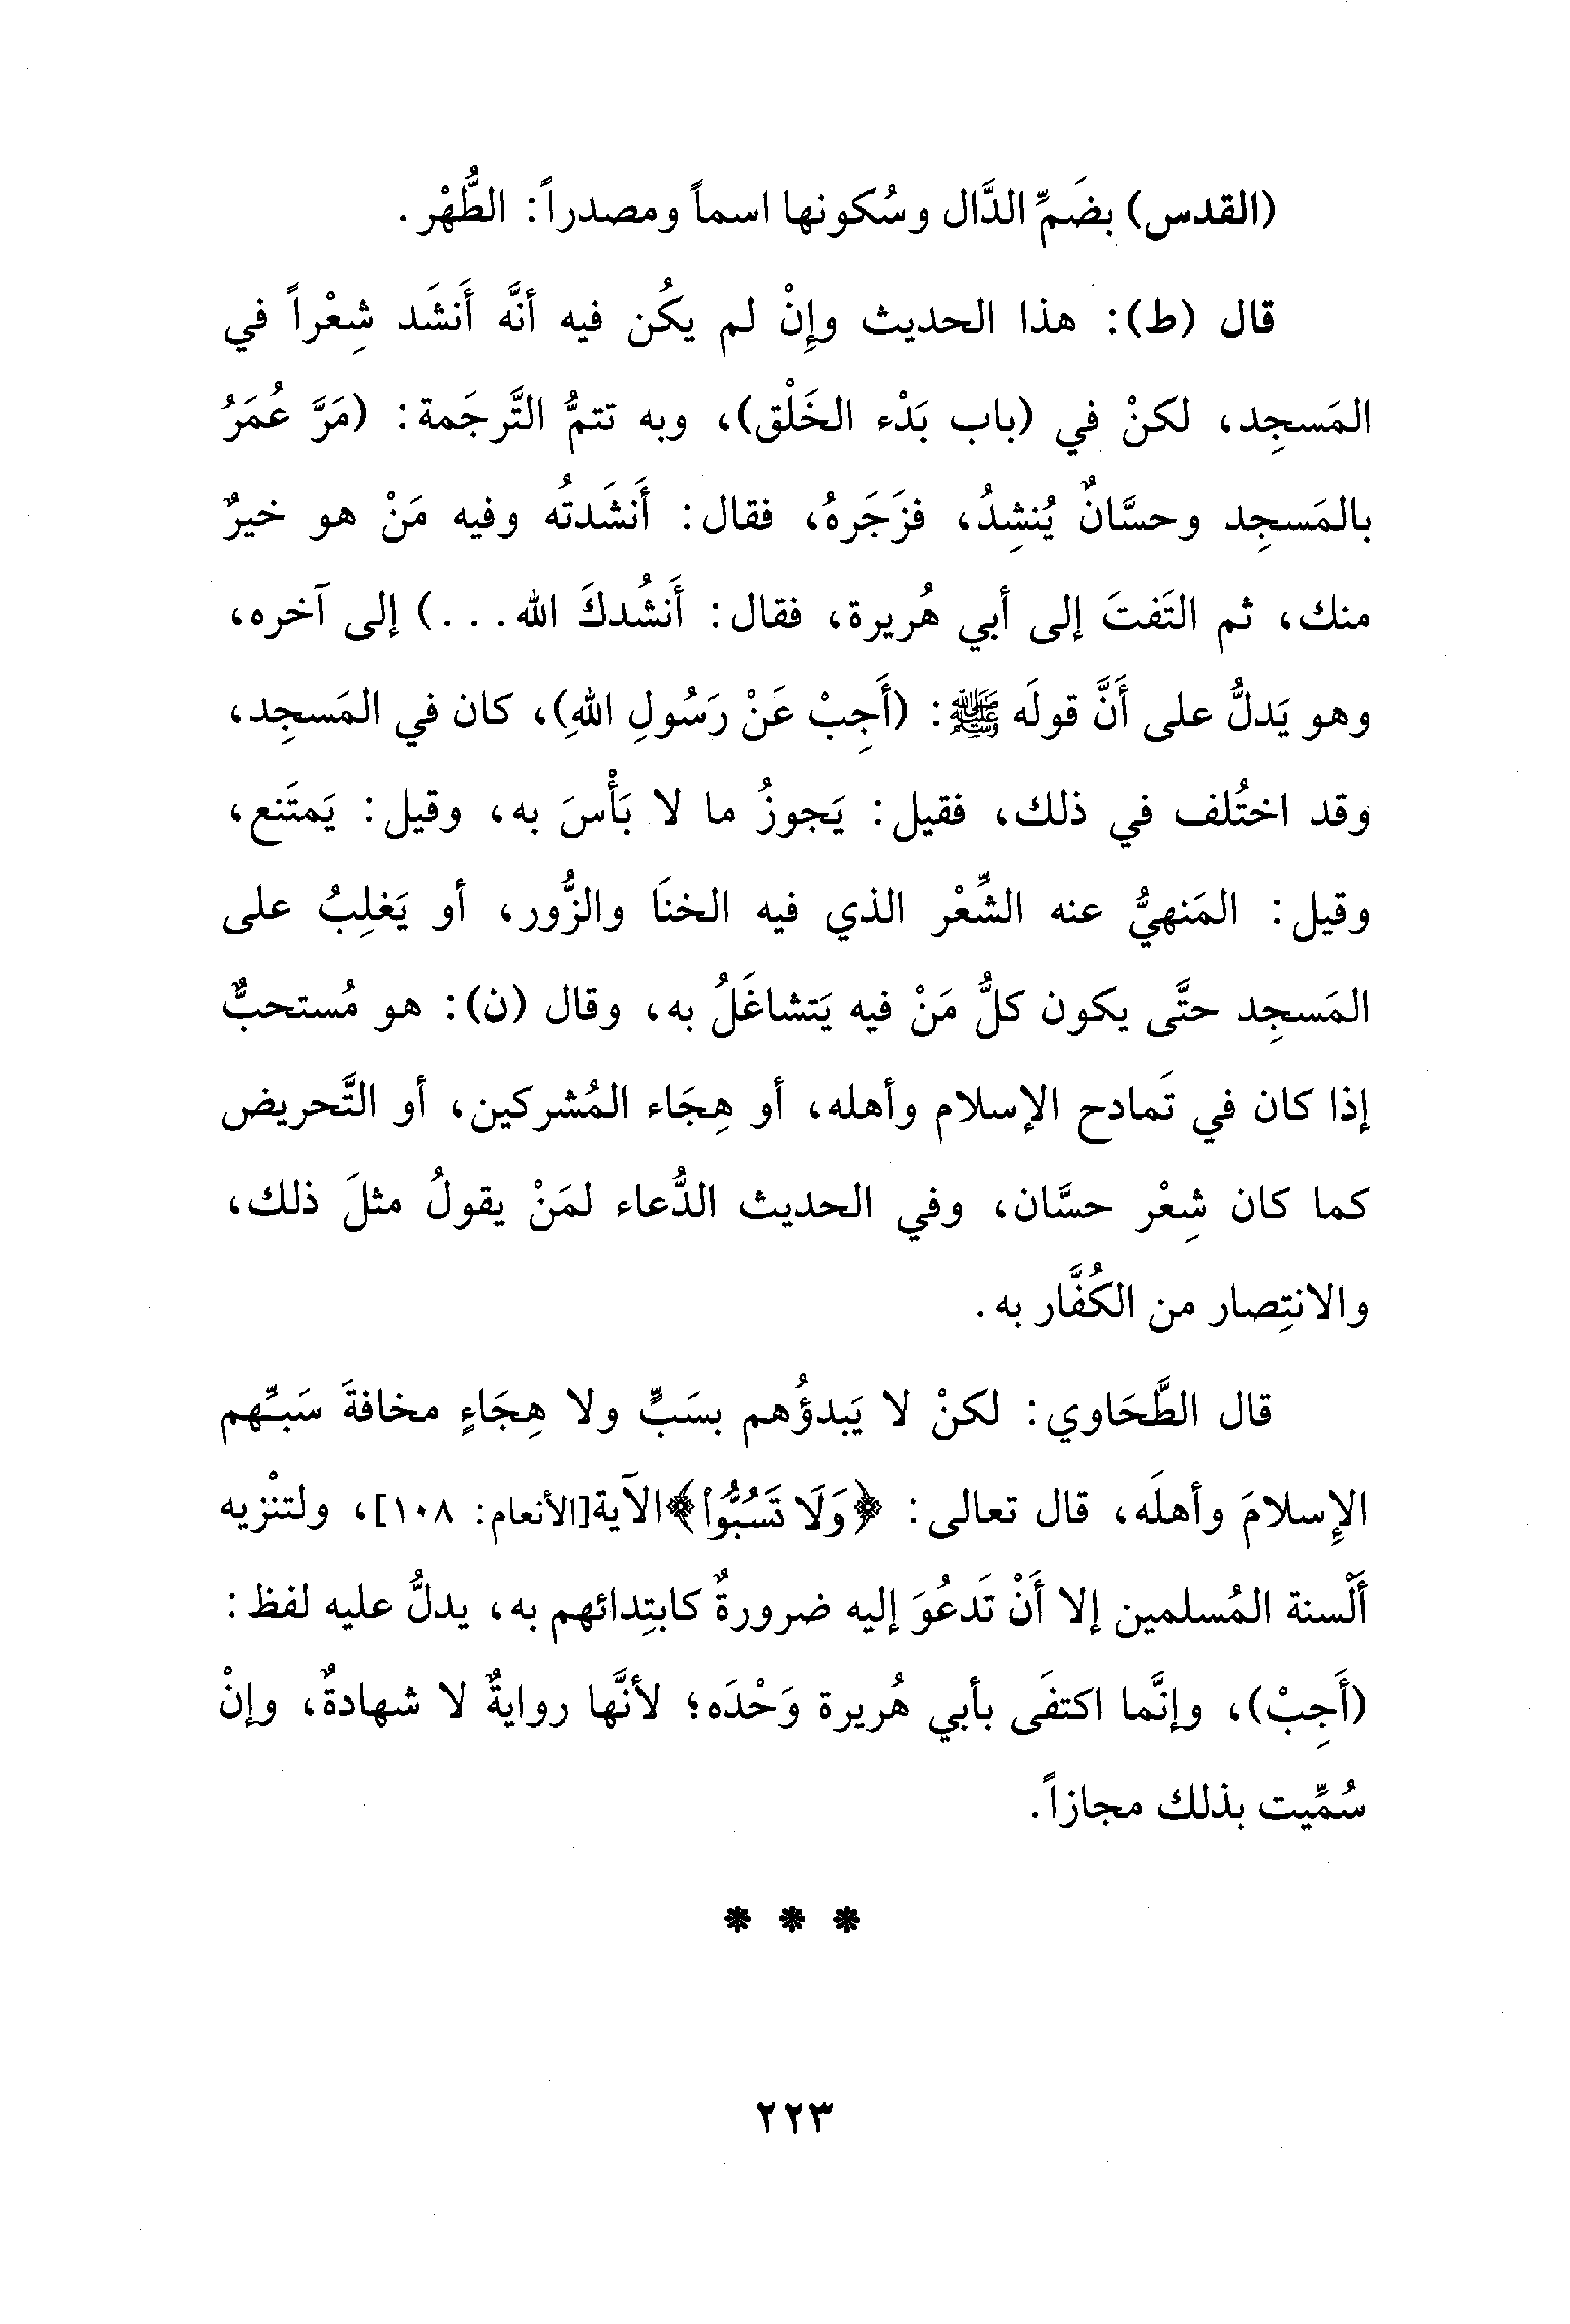 (القدس) بضَمِّ الدَّال وسُكونها اسماً ومصدراً: الطُّهْر.
قال (ط): هذا الحديث وإِنْ لم يكُن فيه أنَّه أَنشَد شِعْراً في
المَسجِد، لكنْ في (باب بَدْء الخَلْق)، وبه تتمُّ التَّرجَمة: (مَرَّ عُمَرُ
بالمَسجِد وحسَّانٌ يُنشِدُ، فزَجَرهُ، فقال: أَنشَدتُه وفيه مَنْ هو خيرٌ
منك، ثم التَفتَ إلى أبي هُريرة، فقال: أَنشُدكَ الله...) إلى آخره،
وهو يَدلُّ على أَنَّ قولَه ﷺ: (أَجِبْ عَنْ رَسُولِ اللهِ)، كان في المَسجِد،
وقد اختُلف في ذلك، فقيل: يَجوزُ ما لا بَأْسَ به، وقيل: يَمتَنع،
وقيل: المَنهيُّ عنه الشِّعْر الذي فيه الخنَا والزُّور، أو يَغلِبُ على
المَسجِد حتَّى يكون كلُّ مَنْ فيه يَتشاغَلُ به، وقال (ن): هو مُستحبٌّ
إذا كان في تَمادح الإسلام وأهله، أو هِجَاء المُشركين، أو التَّحريض
كما كان شِعْر حسَّان، وفي الحديث الدُّعاء لمَنْ يقولُ مثلَ ذلك،
والانتِصار من الكُفَّار به.
قال الطَّحَاوي: لكنْ لا يَبدؤُهم بسَبٍّ ولا هِجَاءٍ مخافةَ سَبِّهم
الإِسلامَ وأهلَه، قال تعالى: ﴿وَلَا تَسُبُّوا۟﴾الآية[الأنعام: ١٠٨]، ولتنْزيه
أَلْسنة المُسلمين إلا أَنْ تَدعُوَ إليه ضرورةٌ كابتِدائهم به، يدلُّ عليه لفظ:
(أَجِبْ)، وإنَّما اكتفَى بأبي هُريرة وَحْدَه؛ لأنَّها روايةٌ لا شهادةٌ، وإنْ
سُمِّيت بذلك مجازاً.
* * *
٢٢٣